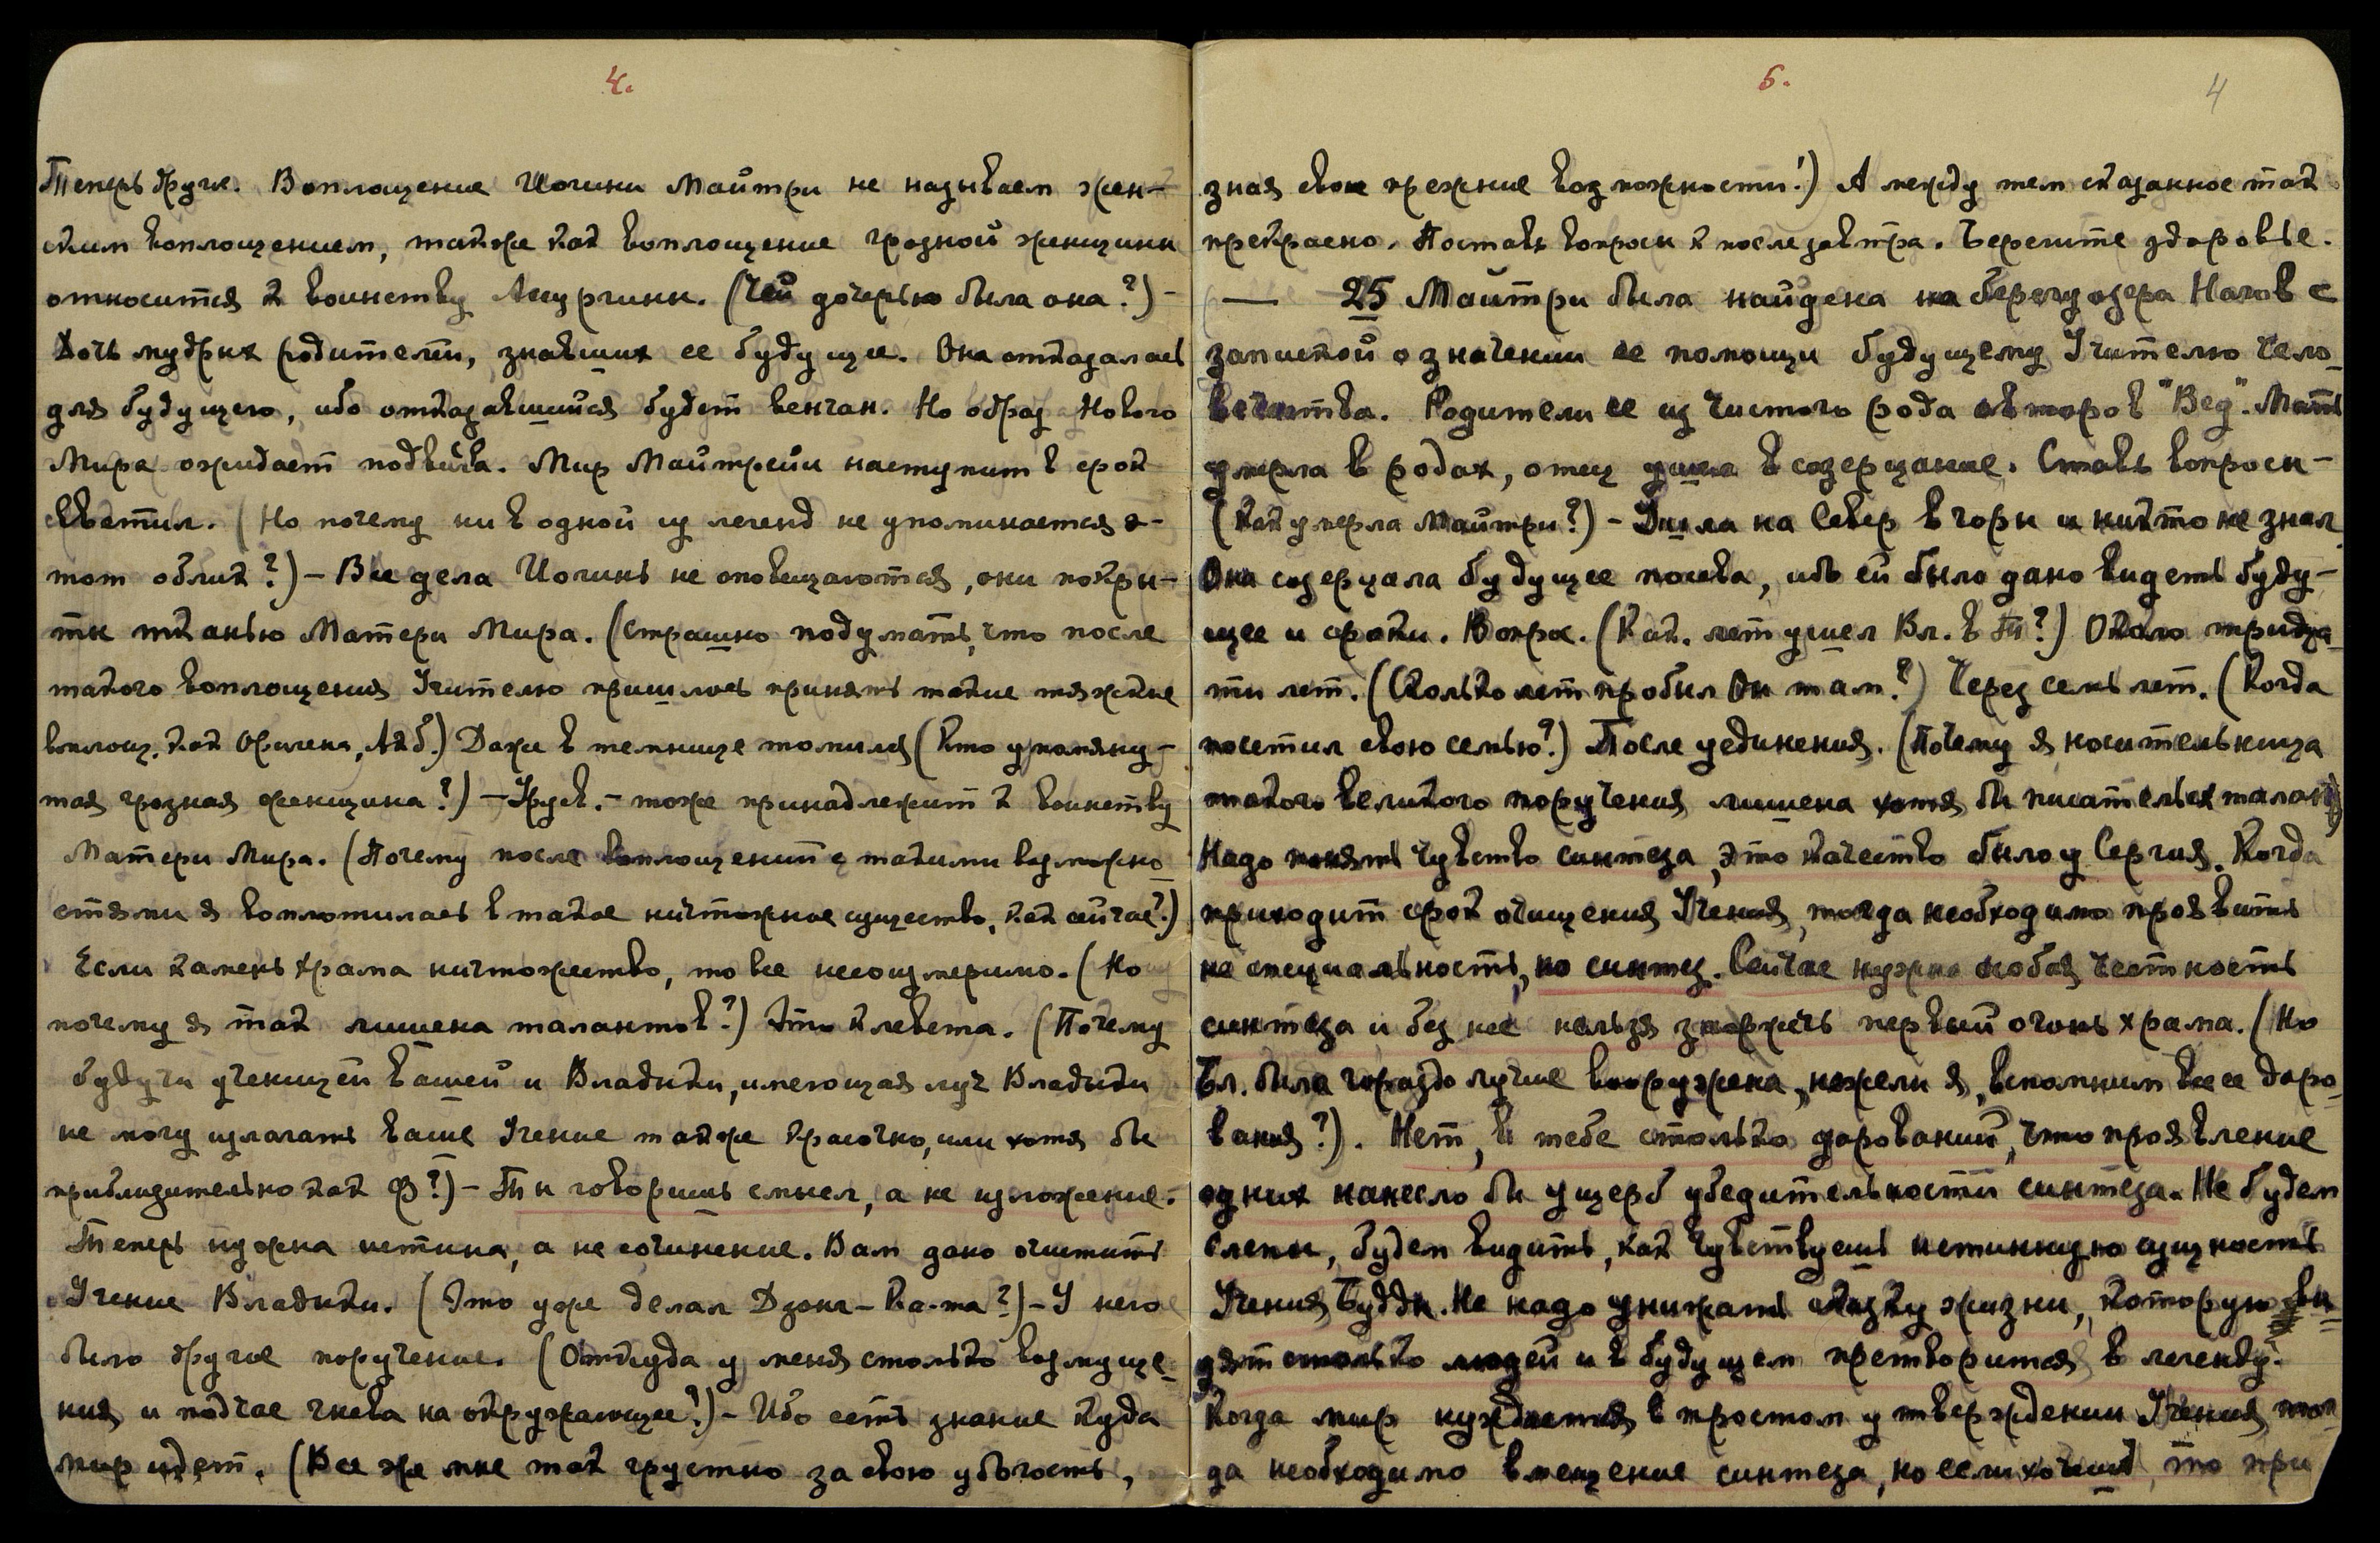 4.
Теперь другое. Воплощение Иогини Майтри не называем жен-
ским воплощением, также как воплощение грозной женщины
относится к воинству Амургинн. (Чей дочерью была она?) -
Дочь мудрых родителей, знавших ее будущее. Она отказалась
для будущего, ибо отказавшийся будет венчан. Но образ Нового
Мира ожидает подвига. Мир Майтрейи наступит в срок
светил. (Но почему ни в одной из легенд не упоминается э-
тот облик?) - Все дела Иогинь не оповещаются, они покры-
ты тканью Матери Мира. (Страшно подумать, что после
такого воплощения Учителю пришлось принять такие тяжкие
воплощ. как Оригена, Акб.) Даже в темнице томился (Кто упомяну-
тая грозная женщина?) - Урусв. - тоже принадлежит к воинству
Матери Мира. (Почему после воплощений с такими возможно-
стями я воплотилась в такое ничтожное существо, как сейчас?)
Если камень храма ничтожество, то все неизмеримо. (Но
почему я так лишена талантов?) Это клевета. (Почему
будучи ученицей Вашей и Владыки, имеющая луч Владыки
не могу излагать Ваше Учение также красочно, или хотя бы
приблизительно как Ф?) - Ты говоришь смысл, а не изложение.
Теперь нужна истина, а не сочинение. Вам дано очистить
Учение Владыки. (Это уже делал Дзонг-Ка-па?) - У него
было другое поручение. (Откуда у меня столько возмуще-
ния и подчас гнева на окружающее?) - Ибо есть знание куда
мир идет. (Все же мне так грустно за свою убогость,
5.
4
зная свои прежние возможности!) А между тем сказанное так
прекрасно. Поставь вопросы к послезавтра. Берегите здоровье.
— 25 Майтри была найдена на берегу озера Нагов с
запиской о значении ее помощи будущему Учителю Чело-
вечества. Родители ее из чистого рода авторов "Вед". Мать
умерла в родах, отец ушел в созерцание. Ставь вопросы -
(Как умерла Майтри?) - Ушла на Север в горы и никто не знал
Она созерцала будущее посева, ибо ей было дано видеть буду-
щее и сроки. Вопрос. (Как. лет ушел Вл. в Т?) Около тридца-
ти лет. (Сколько лет пробыл Он там?) Через семь лет. (Когда
посетил свою семью?) После уединения. (Почему я, носительница
такого великого поручения лишена хотя бы писательск таланта)
Надо понять чувство синтеза, это качество было у Сергия. Когда
приходит срок очищения Учения, тогда необходимо проявить
не специальность, но синтез. Сейчас нужна особая честность
синтеза и без нее нельзя зажечь первый огонь храма. (Но
Бл. была гораздо лучше вооружена, нежели я, вспомним все ее даро-
вания?). Нет, в тебе столько дарований, что проявление
одних нанесло бы ущерб убедительности синтеза. Не будем
слепы, будем видеть, как чувствуешь истинную сущность
Учения Будды. Не надо унижать сказку жизни, которую ви-
дят столько людей и в будущем претворится в легенду.
Когда мир нуждается в простом утверждении Учения, тог-
да необходимо вмещение синтеза, но если хочешь, то при